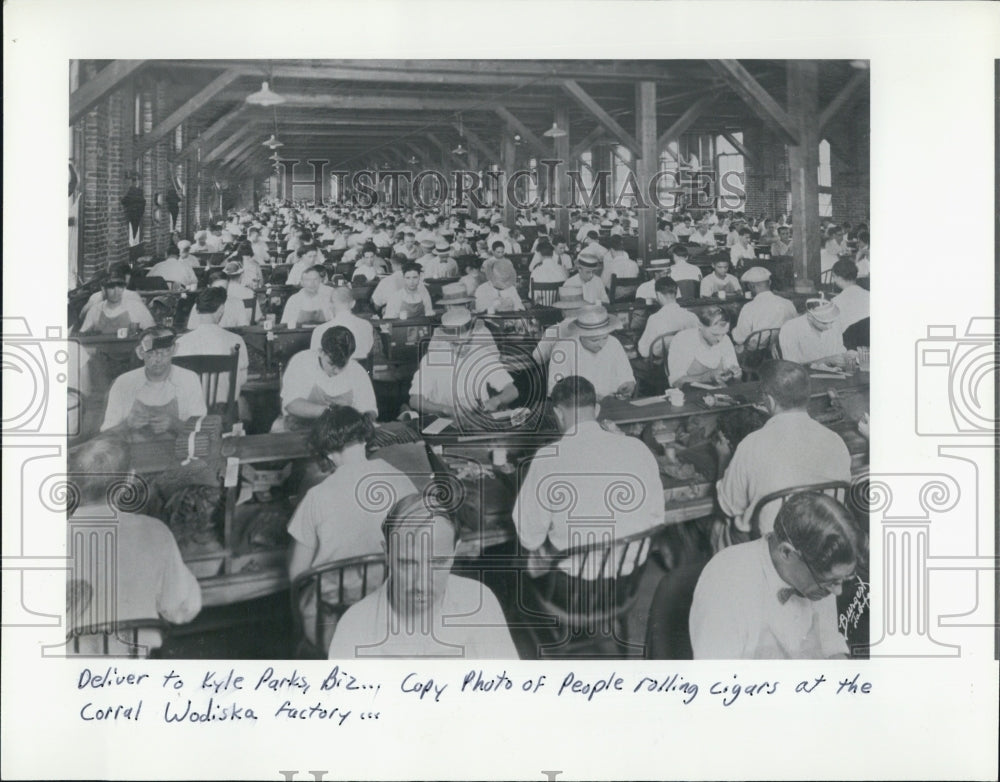 HISTORIC IMAGES
Burgert
Deliver to Kyle Parks, Biz... Copy Photo of People rolling cigars at the
Corral Wodiska factory...